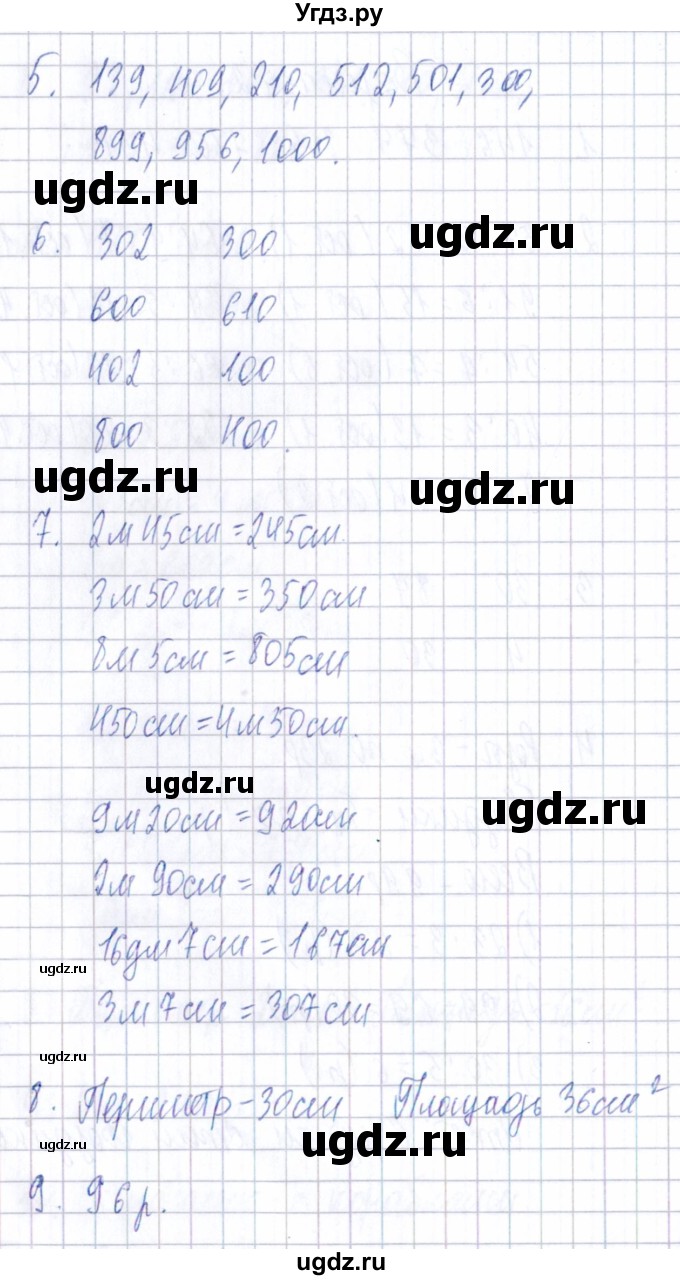 Угдз.ру
5. 139, 409, 210, 512, 501, 300,
899, 956, 1000.
ugdz.ru
ugdz.ru
6. 302 300
600 610
402 100
800 400.
ugdz.ru
ugdz.ru
7. 2м 45см = 245см.
3м 50см = 350см
8м 5см = 805см
450см = 4м 50см.
ugdz.ru
ugdz.ru
9м 20см = 920см
2м 90см = 290см
16дм 7см = 167см
ugdz.ru
3м 7см = 307см
ugdz.ru
8. Периметр - 30см Площадь 36см²
ugdz.ru
ugdz.ru
9. 96 р.
ugdz.ru
ugdz.ru